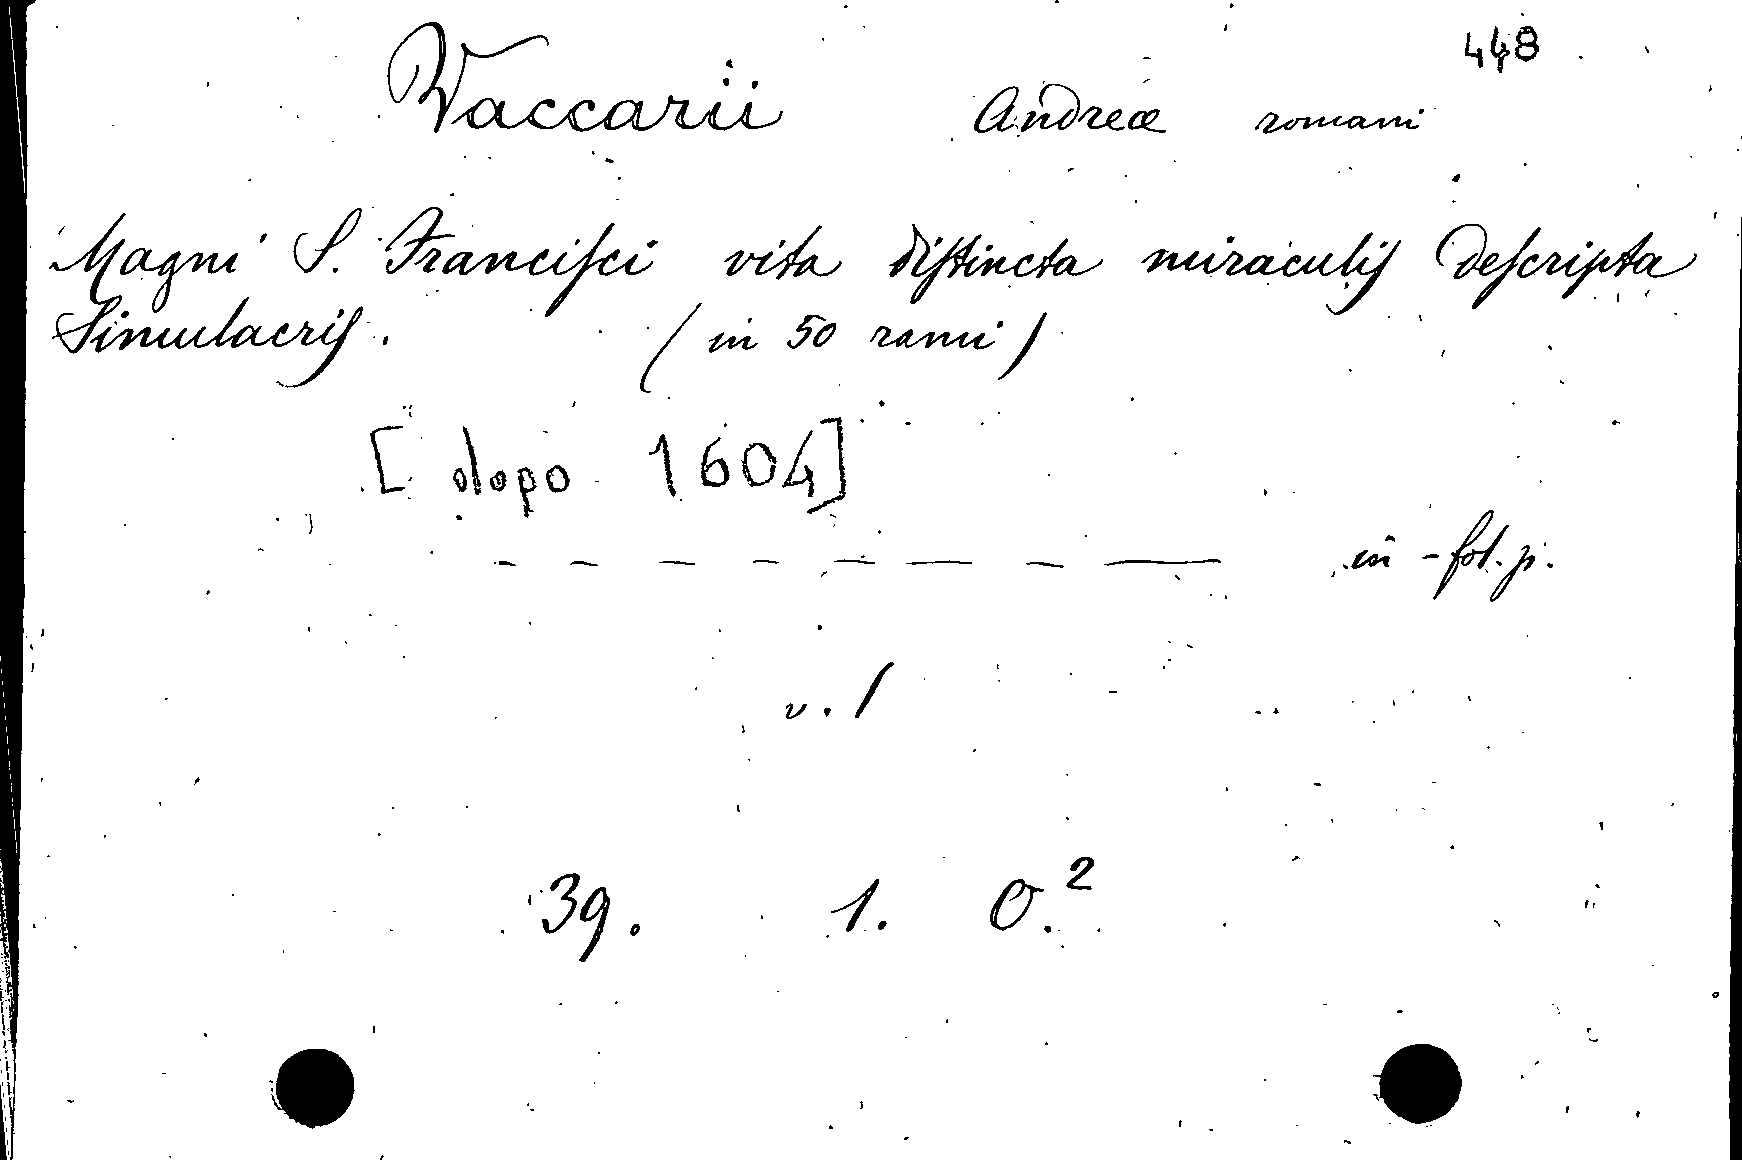 448
Vaccarii Andreæ romani
Magni S. Franciſci vita diſtincta miraculiſ deſcripta
Simulacriſ. (in 50 rami)
[dopo 1604]
— — — — — — — — in-fol. p.
v. 1
39. 1. O.²